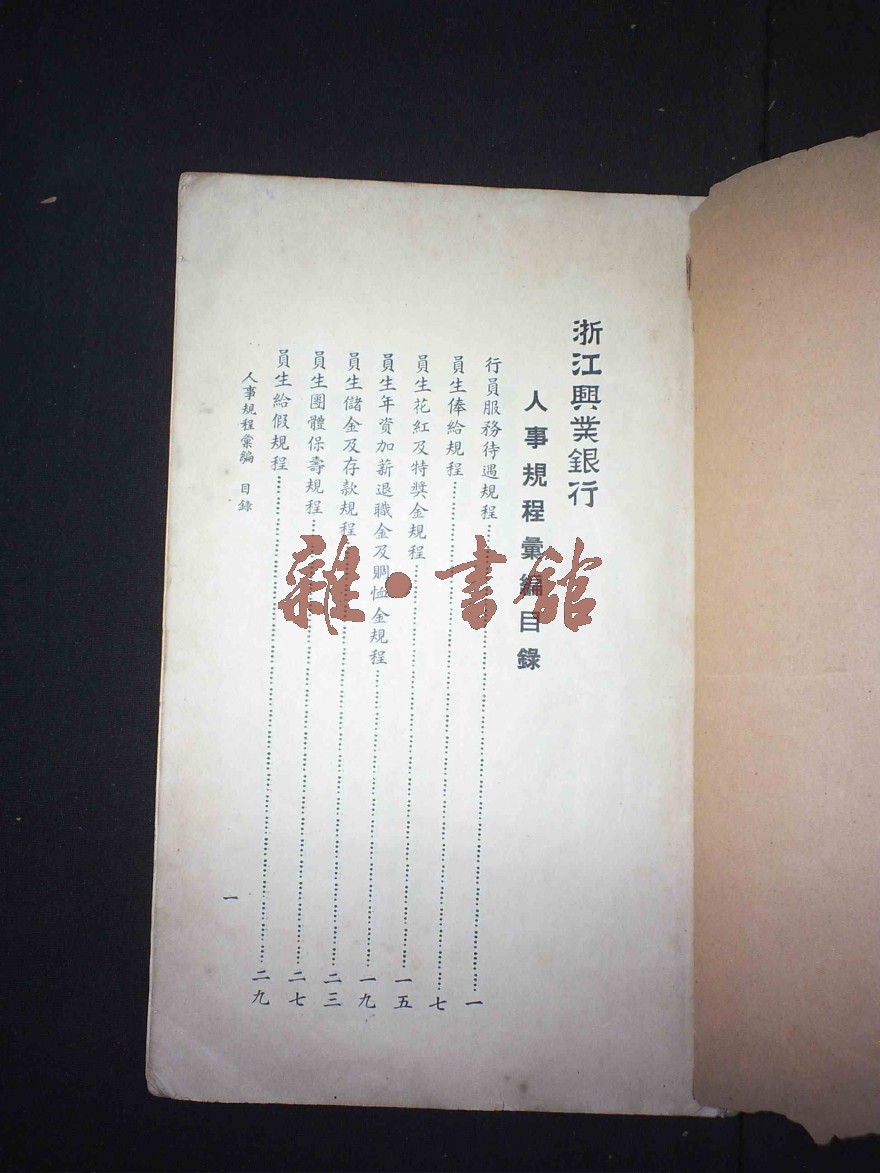 浙江興業銀行
人事規程彙編目錄
行員服務待遇規程……一
員生俸給規程……七
員生花紅及特獎金規程……一五
員生年資加薪退職金及賙恤金規程……一九
員生儲金及存款規程……二三
員生團體保壽規程……二七
員生給假規程……二九
人事規程彙編 目錄
一
雜·書舘